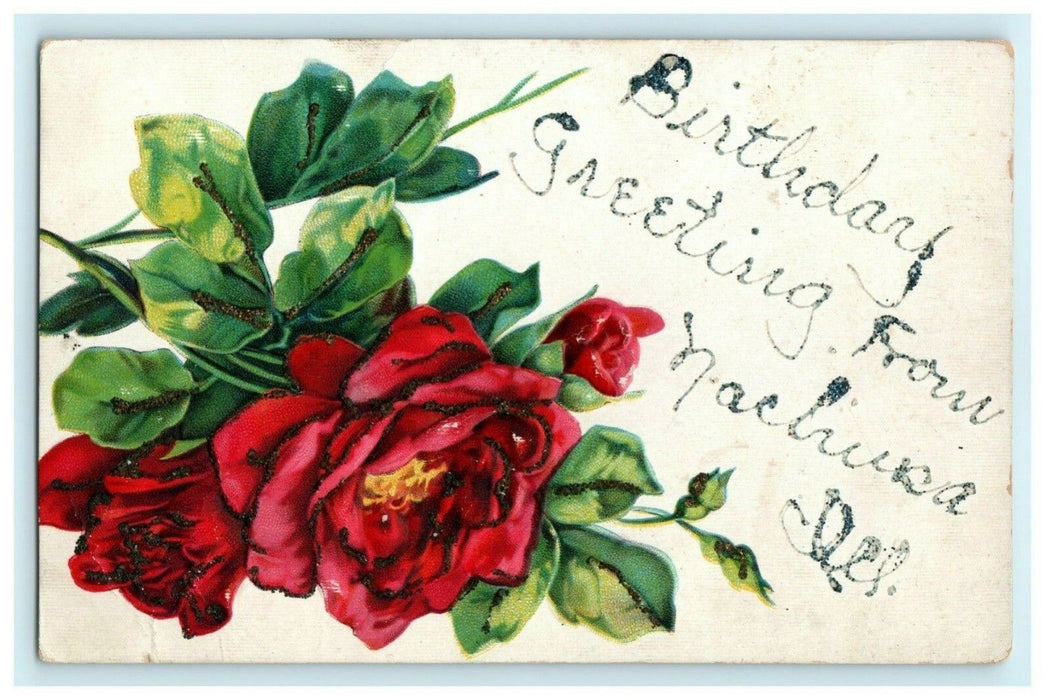 Birthday
Greeting From
Nachusa
Ill.